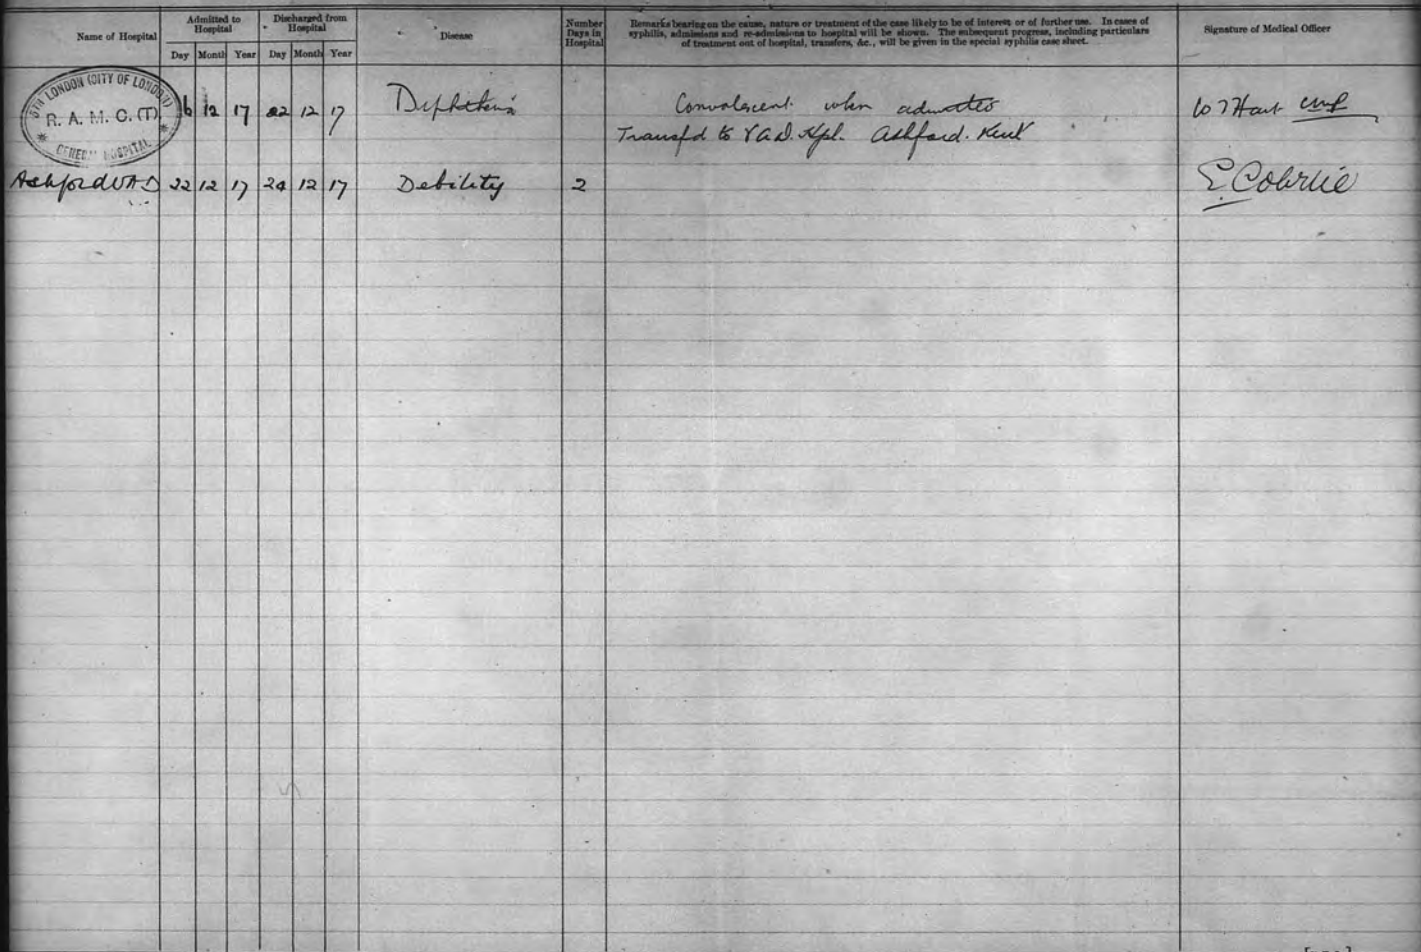 Name of Hospital
Admitted to Hospital
Discharged from Hospital
Disease
Number Days in Hospital
Remarks bearing on the cause, nature or treatment of the case likely to be of interest or of further use. In cases of
syphilis, admissions and re-admissions to hospital will be shown. The subsequent progress, including particulars
of treatment out of hospital, transfers, &c., will be given in the special syphilis case sheet.
Signature of Medical Officer
Day Month Year Day Month Year
5TH LONDON (CITY OF LONDON)
R. A. M. C. (T)
GENERAL HOSPITAL
16 12 17 22 12 17 Diphtheria Convalescent when admitted
Transfd to V.A.D. Hpl. Ashford. Kent
Hart
Ashford VAD 22 12 17 24 12 17 Debility 2